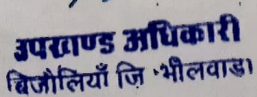 उपखण्ड अधिकारी
बिजौलियाँ जि॰भीलवाड़ा